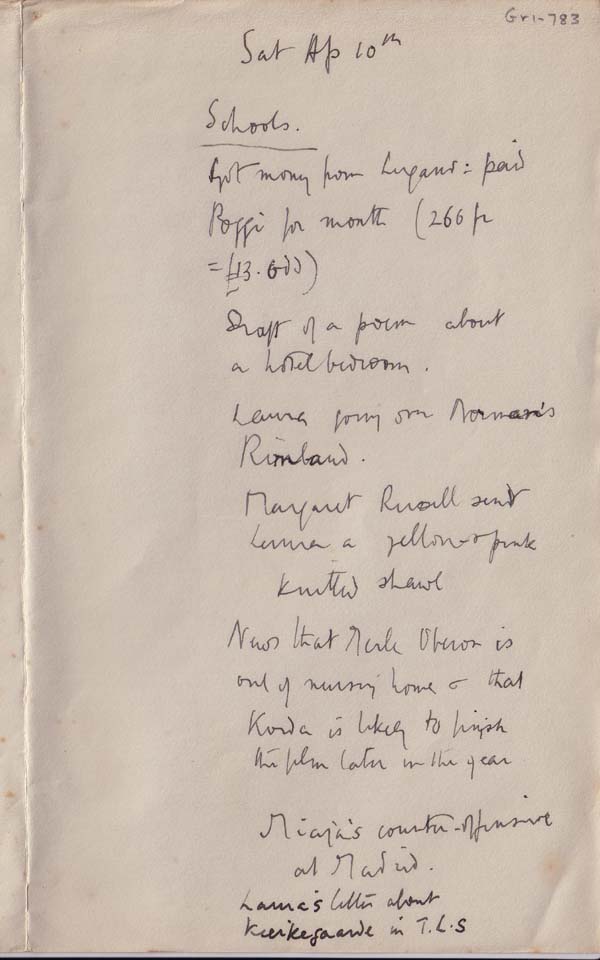 Gr1-783
Sat Ap 10th
Schools.
Got money from Lugano: paid
Poggi for month (266 fr
= £13. odd)
Draft of a poem about
a hotel bedroom.
Laura going over Norman's
Rimbaud.
Margaret Russell sent
Laura a yellow & pink
knitted shawl
News that Merle Oberon is
out of nursing home & that
Korda is likely to finish
the film later in the year
Miaja's counter-offensive
at Madrid.
Laura's letter about
Kierkegaarde in T.L.S